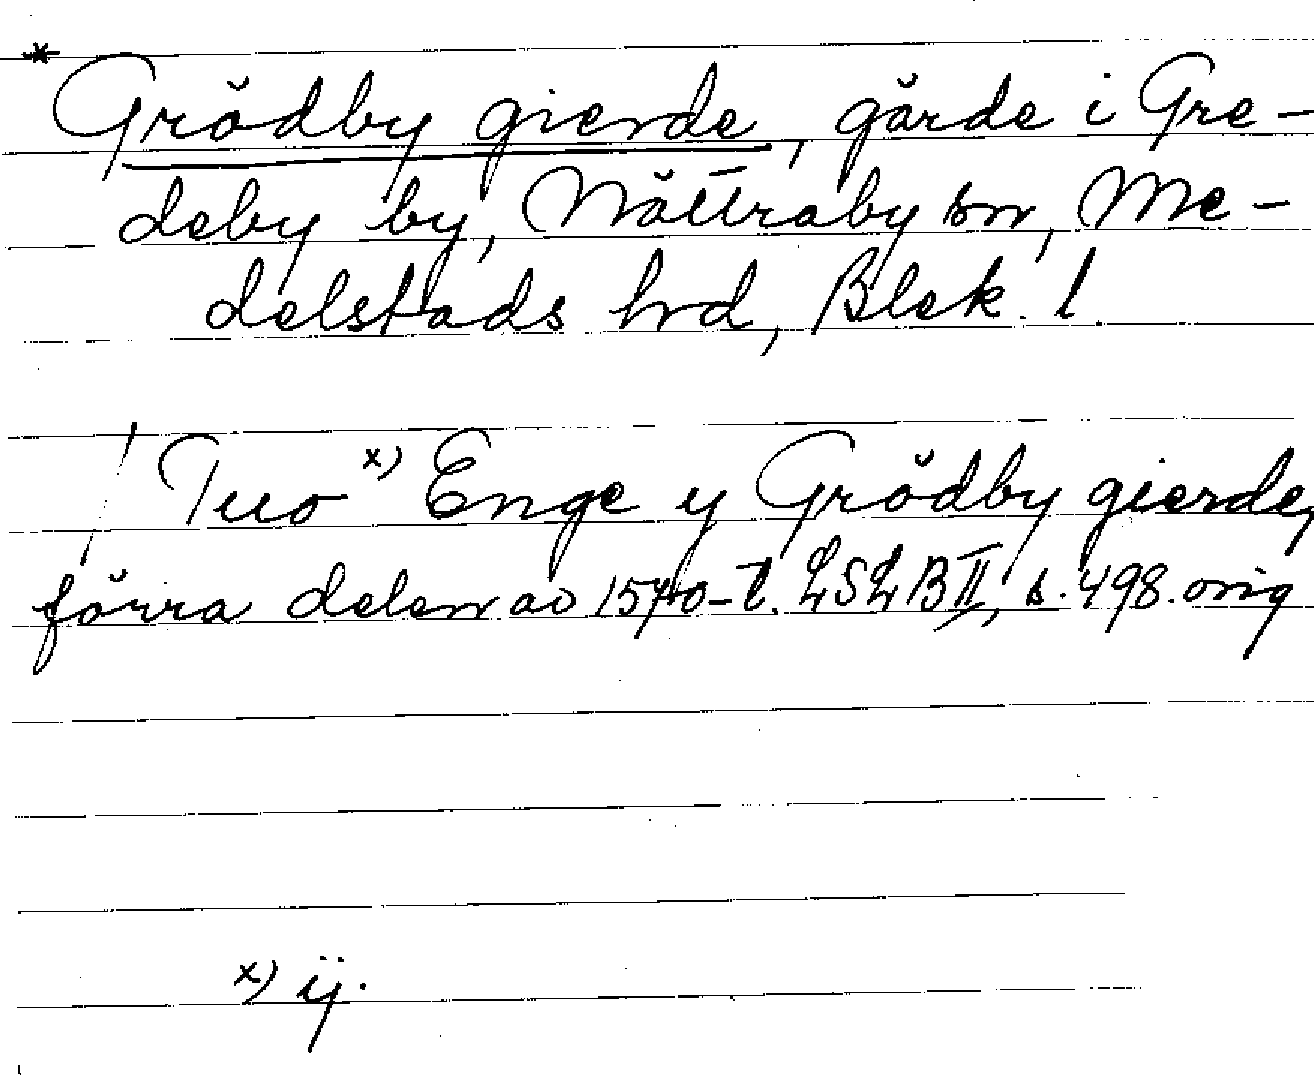 * Grödby gierde, gärde i Gre-
deby by, Nättraby sn, Me-
delstads hd, Blek. l.
Tuo x) Enge y Grödby gierde,
förra delen av 1570-t. LSLB II, s. 498. orig
x) ij.